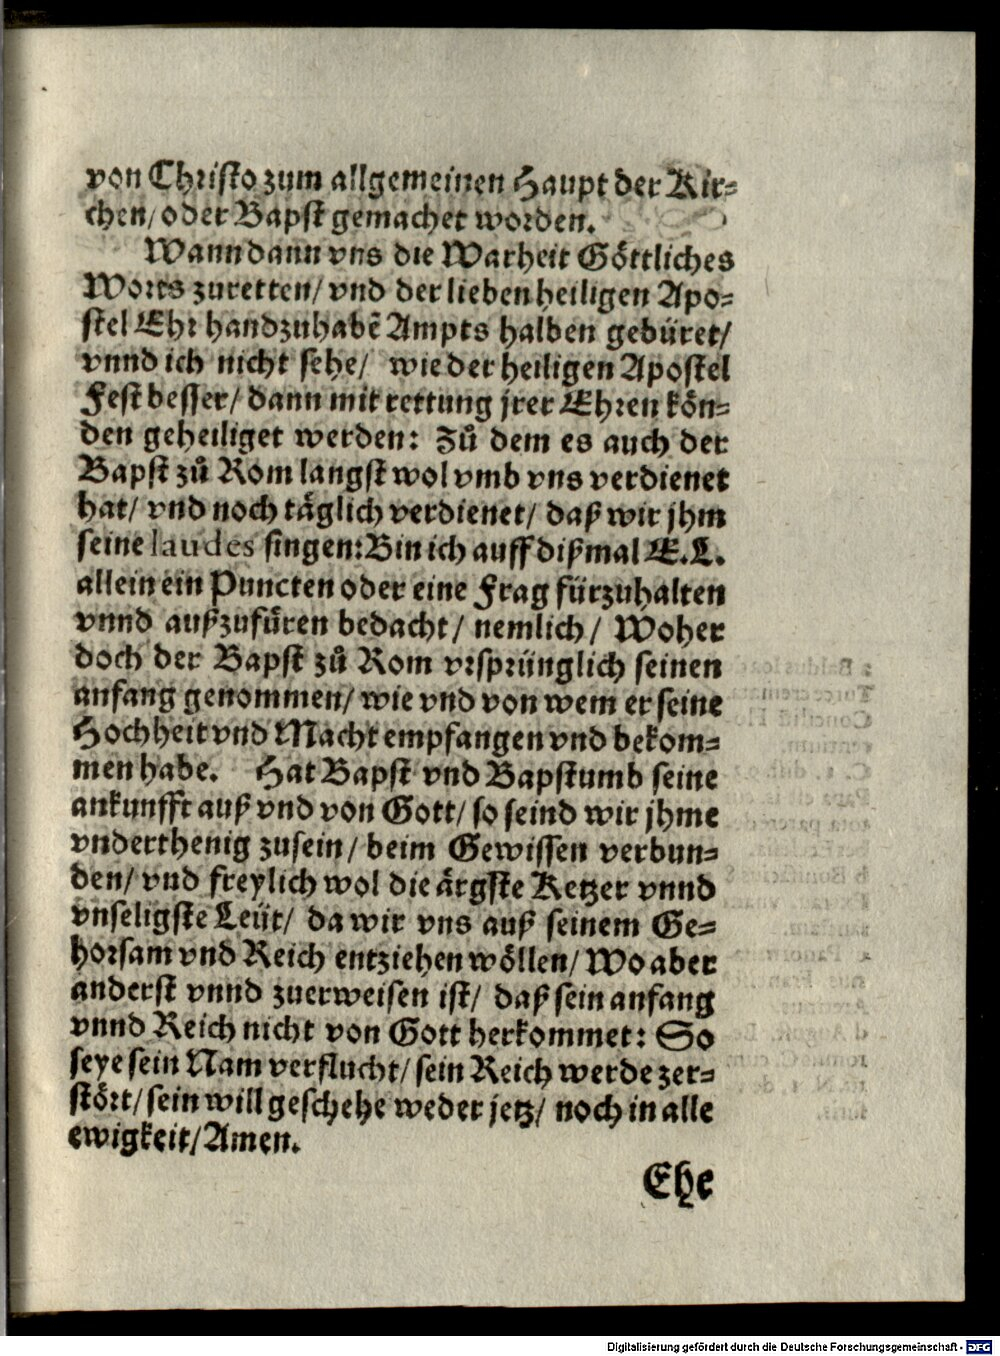 von Christo zum allgemeinen Haupt der Kir=
chen/ oder Bapst gemachet worden.
Wann dann vns die Warheit Göttliches
Worts zuretten/ vnd der lieben heiligen Apo=
stel Ehr handzuhabē Ampts halben gebüret/
vnnd ich nicht sehe/ wie der heiligen Apostel
Fest besser/ dann mit rettung jrer Ehren kön=
den geheiliget werden: Zů dem es auch der
Bapst zů Rom langst wol vmb vns verdienet
hat/ vnd noch täglich verdienet/ daß wir jhm
seine laudes singen: Bin ich auff dißmal E.L.
allein ein Puncten oder eine Frag fürzuhalten
vnnd außzufüren bedacht/ nemlich/ Woher
doch der Bapst zů Rom vrsprünglich seinen
anfang genommen/ wie vnd von wem er seine
Hochheit vnd Macht empfangen vnd bekom=
men habe. Hat Bapst vnd Bapstumb seine
ankunfft auß vnd von Gott/ so seind wir jhme
vnderthenig zusein/ beim Gewissen verbun=
den/ vnd freylich wol die ärgste Ketzer vnnd
vnseligste Leüt/ da wir vns auß seinem Ge=
horsam vnd Reich entziehen wöllen/ Wo aber
anderst vnnd zuerweisen ist/ daß sein anfang
vnnd Reich nicht von Gott herkommet: So
seye sein Nam verflucht/ sein Reich werde zer=
stört/ sein will geschehe weder jetz/ noch in alle
ewigkeit/ Amen.
Ehe
Digitalisierung gefördert durch die Deutsche Forschungsgemeinschaft - DFG